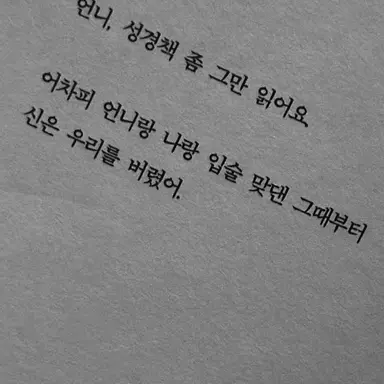 언니, 성경책 좀 그만 읽어요.
어차피 언니랑 나랑 입술 맞댄 그때부터
신은 우리를 버렸어.